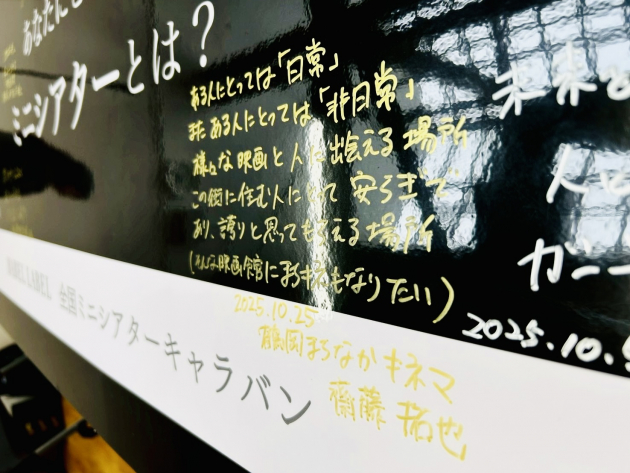 あなたに
ミニシアターとは？
ある人にとっては「日常」
また ある人にとっては「非日常」
様々な映画と人に出会える場所
この街に住む人にとって 安らぎで
あり、誇りと思ってもらえる場所
(そんな映画館にまちキネもなりたい)
2025.10.25
静岡まちなかキネマ
齋藤 拓也
LABEL 全国ミニシアターキャラバン
未来
人と
ガニー
2025.10.